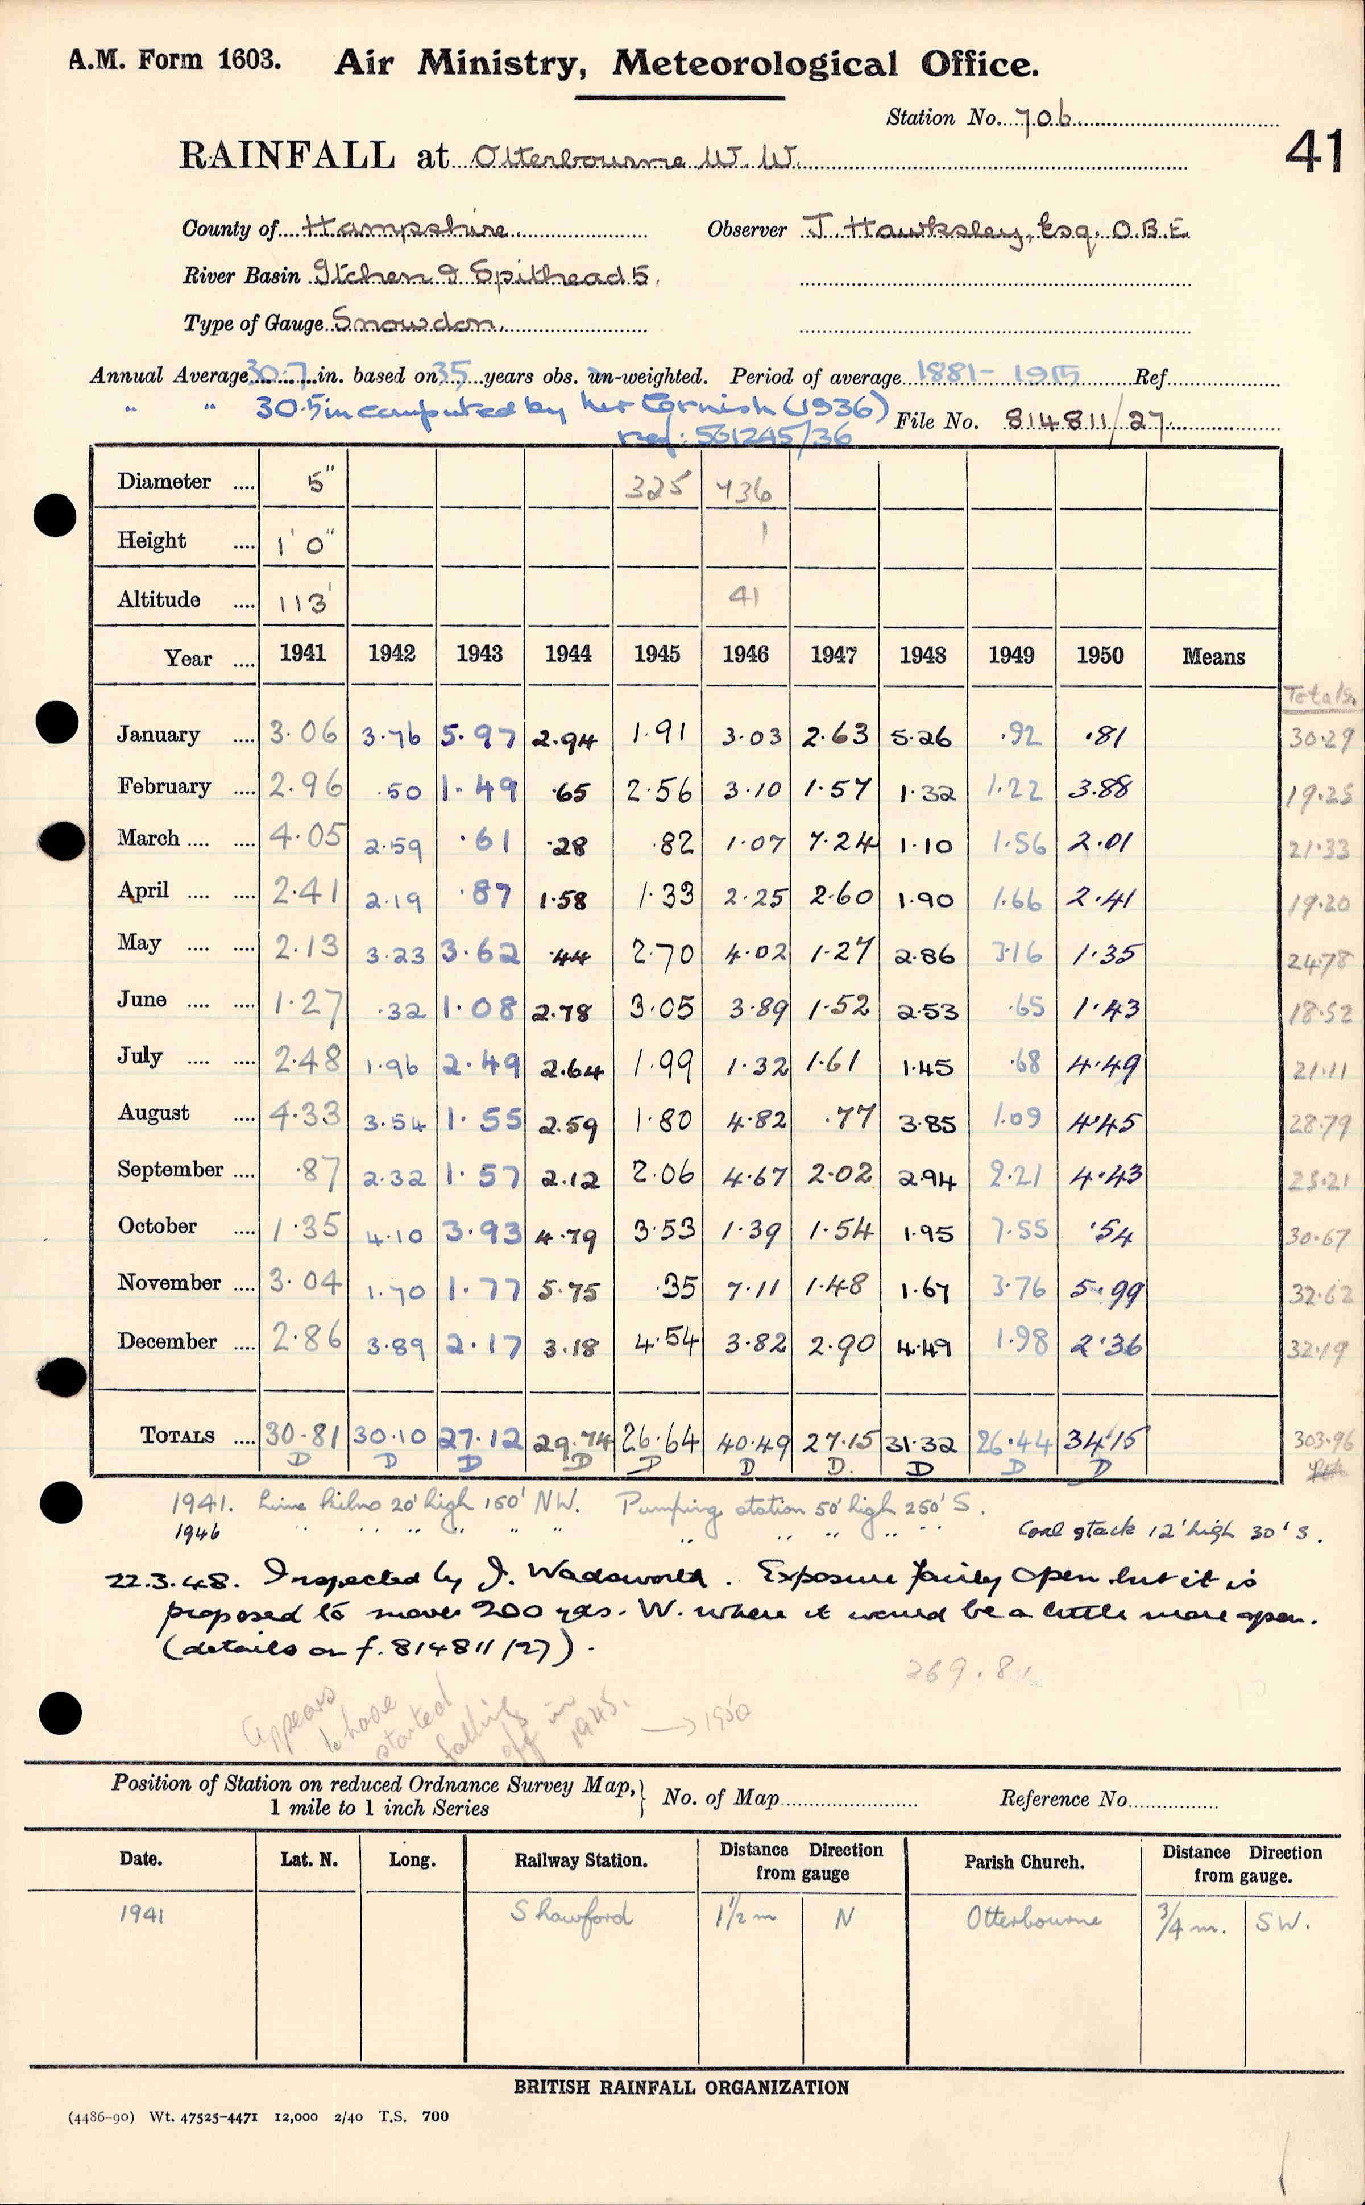 A.M. Form 1603. Air Ministry, Meteorological Office.
Station No. 706
RAINFALL at Otterbourne W. W. 41
County of Hampshire Observer J. Hawksley, Esq. O.B.E.
River Basin Itchen & Spithead 5.
Type of Gauge Snowdon.
Annual Average 30.7 in. based on 35 years obs. un-weighted. Period of average 1881 - 1915 Ref.
" " 30.5 in computed by Mr Cornish (1936) File No. 814811/27
Ref: 561245/36
Diameter .... 5" 325 436
Height .... 1' 0" 1
Altitude .... 113' 41
Year .... 1941 1942 1943 1944 1945 1946 1947 1948 1949 1950 Means
Totals.
January .... 3.06 3.76 5.97 2.94 1.91 3.03 2.63 5.26 .92 .81 30.29
February .... 2.96 .50 1.49 .65 2.56 3.10 1.57 1.32 1.22 3.88 19.25
March .... .... 4.05 2.59 .61 .28 .82 1.07 7.24 1.10 1.56 2.01 21.33
April .... .... 2.41 2.19 .87 1.58 1.33 2.25 2.60 1.90 1.66 2.41 19.20
May .... .... 2.13 3.23 3.62 .44 2.70 4.02 1.27 2.86 3.16 1.35 24.78
June .... .... 1.27 .32 1.08 2.78 3.05 3.89 1.52 2.53 .65 1.43 18.52
July .... .... 2.48 1.96 2.49 2.64 1.99 1.32 1.61 1.45 .68 4.49 21.11
August .... 4.33 3.54 1.55 2.59 1.80 4.82 .77 3.85 1.09 4.45 28.79
September .... .87 2.32 1.57 2.12 2.06 4.67 2.02 2.94 2.21 4.43 25.21
October .... 1.35 4.10 3.93 4.79 3.53 1.39 1.54 1.95 7.55 .54 30.67
November .... 3.04 1.70 1.77 5.75 .35 7.11 1.48 1.67 3.76 5.99 32.62
December .... 2.86 3.89 2.17 3.18 4.54 3.82 2.90 4.49 1.98 2.36 32.19
TOTALS .... 30.81 30.10 27.12 29.74 26.64 40.49 27.15 31.32 26.44 34.15 303.96
D D D D D D D. D D D
1941. Lime kilns 20' high 150' NW. Pumping station 50' high 250' S.
1946 " " " " " " " " " " Coal stack 12' high 30' S.
22.3.48. Inspected by J. Wadsworth. Exposure fairly open but it is
proposed to move 200 yds. W. where it would be a little more open.
(details on f. 814811/27).
269.81
Appears to have started falling off in 1945. → 1950
Position of Station on reduced Ordnance Survey Map, } No. of Map Reference No.
1 mile to 1 inch Series
Date. Lat. N. Long. Railway Station. Distance Direction from gauge Parish Church. Distance Direction from gauge.
1941 Shawford 1 1/2 m N Otterbourne 3/4 m. SW.
BRITISH RAINFALL ORGANIZATION
(4486-90) Wt. 47525-4471 12,000 2/40 T.S. 700